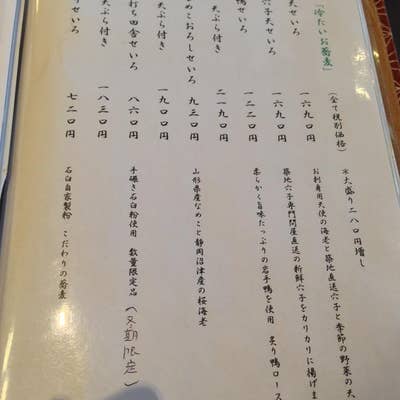 「冷たいお蕎麦」
(全て税別価格)
※大盛り二八〇円増し
天せいろ
一六九〇円
お刺身用天使の海老と築地直送穴子と季節の野菜の天
穴子天せいろ
一六九〇円
築地穴子専門問屋直送の新鮮穴子をカリカリに揚げま
鴨せいろ
一二二〇円
柔らかく旨味たっぷりの岩手鴨を使用 炙り鴨ロース
天ぷら付き
二一九〇円
なめこおろしせいろ
九三〇円
山形県産なめこと静岡沼津産の桜海老
天ぷら付き
一九〇〇円
打ち田舎せいろ
八六〇円
手碾き石臼粉使用 数量限定品 (冬期限定)
天ぷら付き
一八三〇円
りせいろ
七二〇円
石臼自家製粉 こだわりの蕎麦